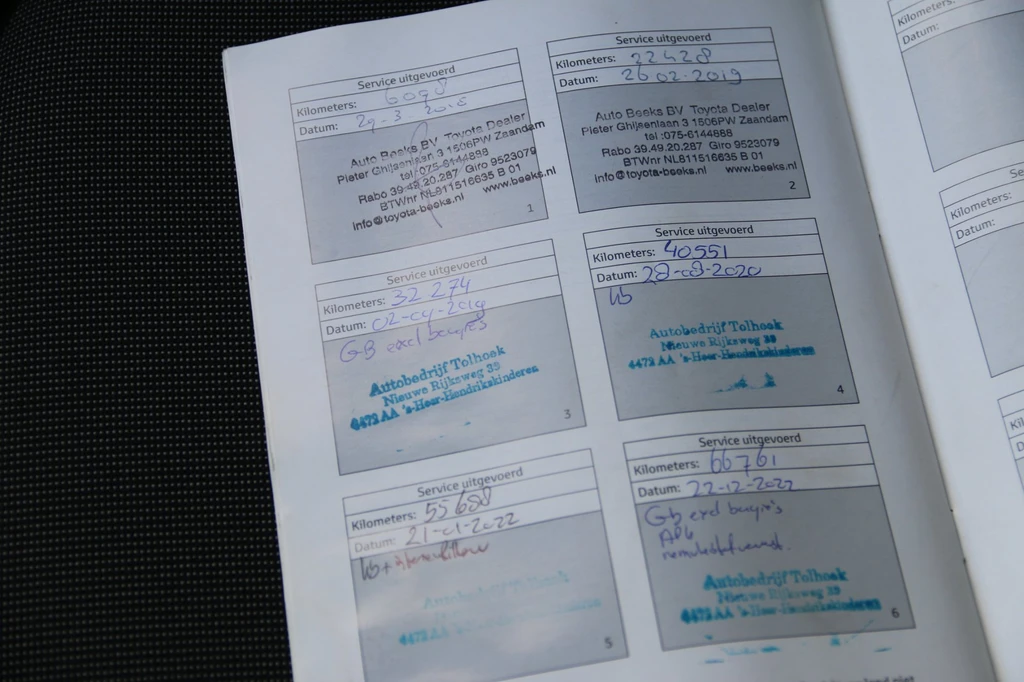 Service uitgevoerd
Kilometers: 6098
Datum: 29-3-2018
Auto Beeks BV Toyota Dealer
Pieter Ghijsenlaan 3 1506PW Zaandam
tel:075-6144888
Rabo 39.49.20.287 Giro 9523079
BTWnr NL811516635 B 01
info@toyota-beeks.nl www.beeks.nl
1
Service uitgevoerd
Kilometers: 22428
Datum: 26 02-2019
Auto Beeks BV Toyota Dealer
Pieter Ghijsenlaan 3 1506PW Zaandam
tel :075-6144888
Rabo 39.49.20.287 Giro 9523079
BTWnr NL811516635 B 01
info@toyota-beeks.nl www.beeks.nl
2
Service uitgevoerd
Kilometers: 32 274
Datum: 02-09-2019
GB excl bougies
Autobedrijf Tolhoek
Nieuwe Rijksweg 39
4472 AA 's-Heer-Hendrikskinderen
3
Service uitgevoerd
Kilometers: 40551
Datum: 28-08-2020
Autobedrijf Tolhoek
Nieuwe Rijksweg 39
4472 AA 's-Heer-Hendrikskinderen
4
Service uitgevoerd
Kilometers: 55688
Datum: 21-01-2022
Autobedrijf Tolhoek
4472 AA
5
Service uitgevoerd
Kilometers: 66761
Datum: 22-12-2022
GB excl bougies
APK
remvloeistof ververst.
Autobedrijf Tolhoek
Nieuwe Rijksweg 39
4472 AA 's-Heer-Hendrikskinderen
6
Kilometers:
Datum:
Kilometers:
Datum: